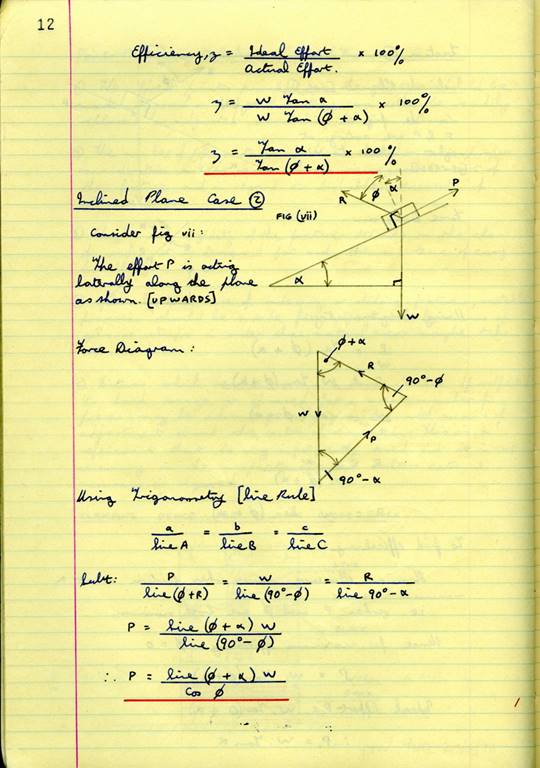 12
Efficiency, η = Ideal Effort / Actual Effort. × 100%
η = W Tan α / W Tan (ø + α) × 100%
η = Tan α / Tan (ø + α) × 100%
Inclined Plane Case ②
FIG (vii)
R
ø
α
P
α
W
Consider fig vii:
The effort P is acting
laterally along the plane
as shown. [UPWARDS]
Force Diagram:
ø+α
R
90°-ø
W
P
90°-α
Using Trigonometry [Sine Rule]
a / Sine A = b / Sine B = c / Sine C
Subt: P / Sine (ø+R) = W / Sine (90°-ø) = R / Sine 90°-α
P = Sine (ø + α) W / Sine (90° - ø)
∴ P = Sine (ø + α) W / Cos ø